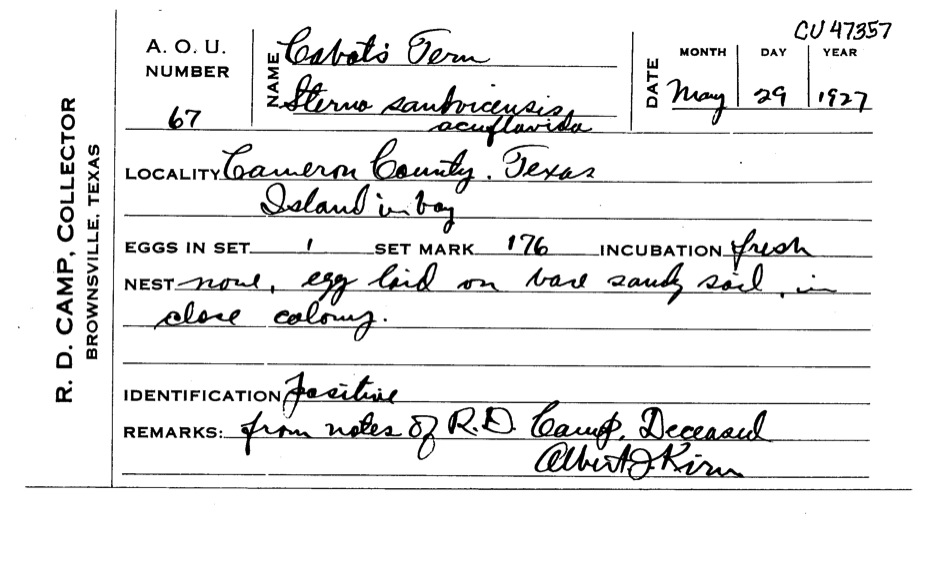 CU 47357
A. O. U. NUMBER 67
NAME Cabot's Tern
Sterna sandvicensis
acuflavida
DATE MONTH May DAY 29 YEAR 1927
R. D. CAMP, COLLECTOR
BROWNSVILLE, TEXAS
LOCALITY Cameron County. Texas
Island in bay
EGGS IN SET 1 SET MARK 176 INCUBATION fresh
NEST none, egg laid on bare sandy soil, in
close colony.
IDENTIFICATION Positive
REMARKS: from notes of R.D. Camp, Deceased
Albert J. Kirn